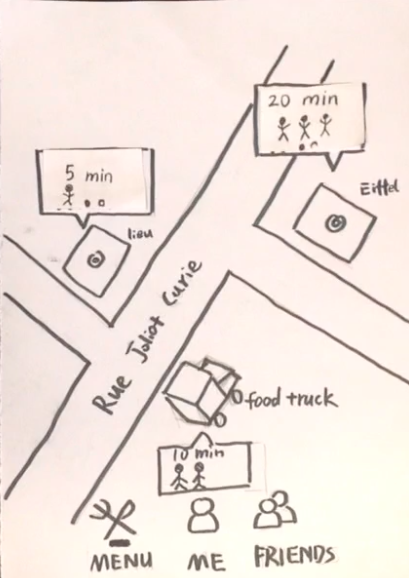 20 min
5 min
Eiffel
lieu
Rue Joliot Curie
food truck
10 min
MENU
ME
FRIENDS